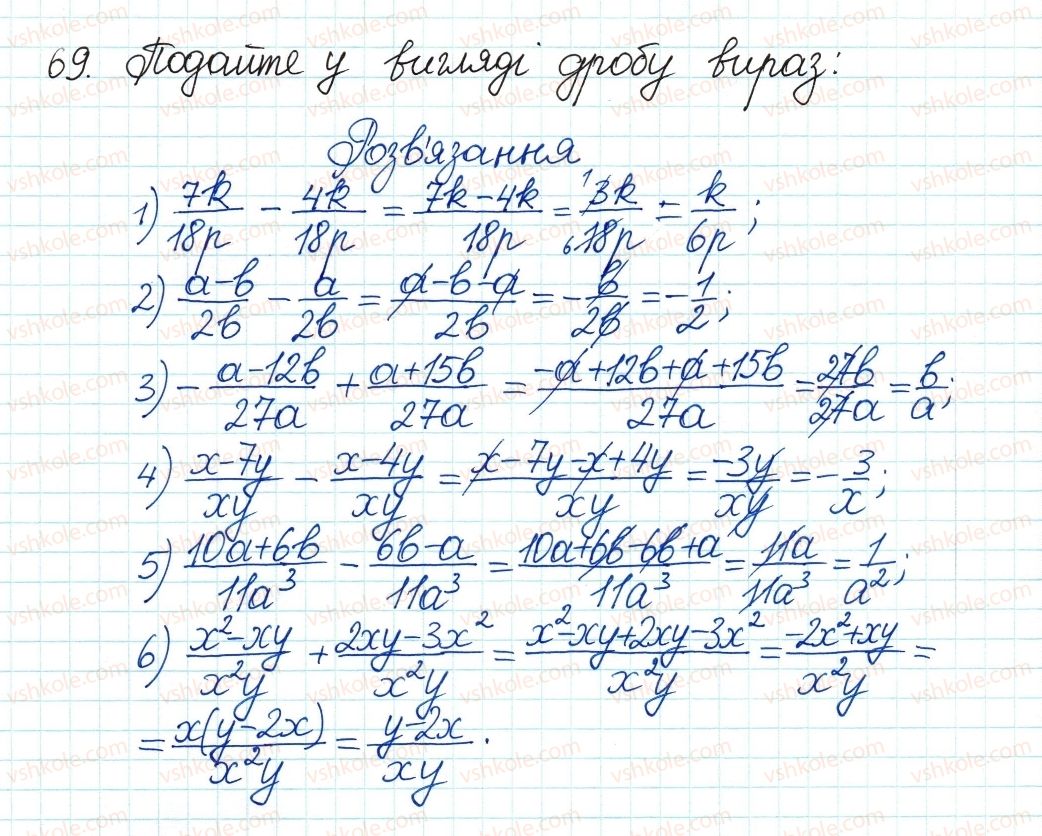 69. Подайте у вигляді дробу вираз:
Розв'язання
1) 7k/18p - 4k/18p = (7k-4k)/18p = 3k/18p = k/6p;
2) (a-b)/2b - a/2b = (a-b-a)/2b = -b/2b = -1/2;
3) -(a-12b)/27a + (a+15b)/27a = (-a+12b+a+15b)/27a = 27b/27a = b/a;
4) (x-7y)/xy - (x-4y)/xy = (x-7y-x+4y)/xy = -3y/xy = -3/x;
5) (10a+6b)/11a³ - (6b-a)/11a³ = (10a+6b-6b+a)/11a³ = 11a/11a³ = 1/a²;
6) (x²-xy)/x²y + (2xy-3x²)/x²y = (x²-xy+2xy-3x²)/x²y = (-2x²+xy)/x²y =
= x(y-2x)/x²y = (y-2x)/xy.